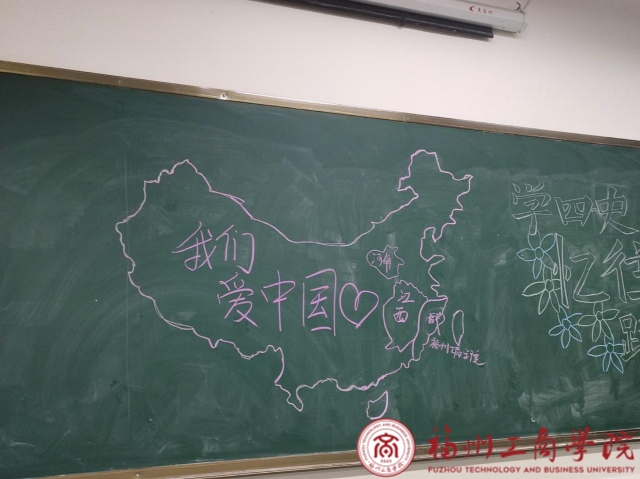 我们
爱中国
河南
江西
福州工商学院
学四史
忆往
福州工商学院
FUZHOU TECHNOLOGY AND BUSINESS UNIVERSITY